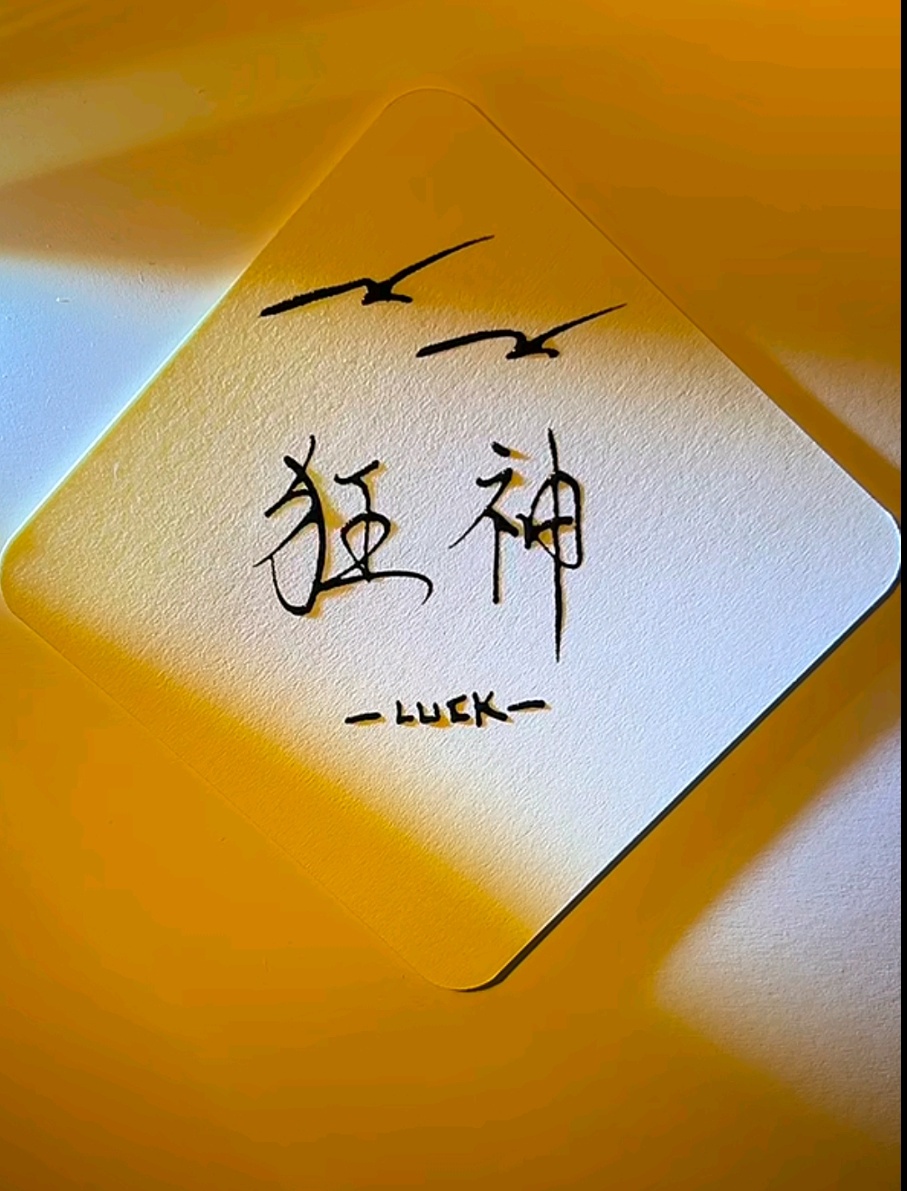 狂神
-LUCK-